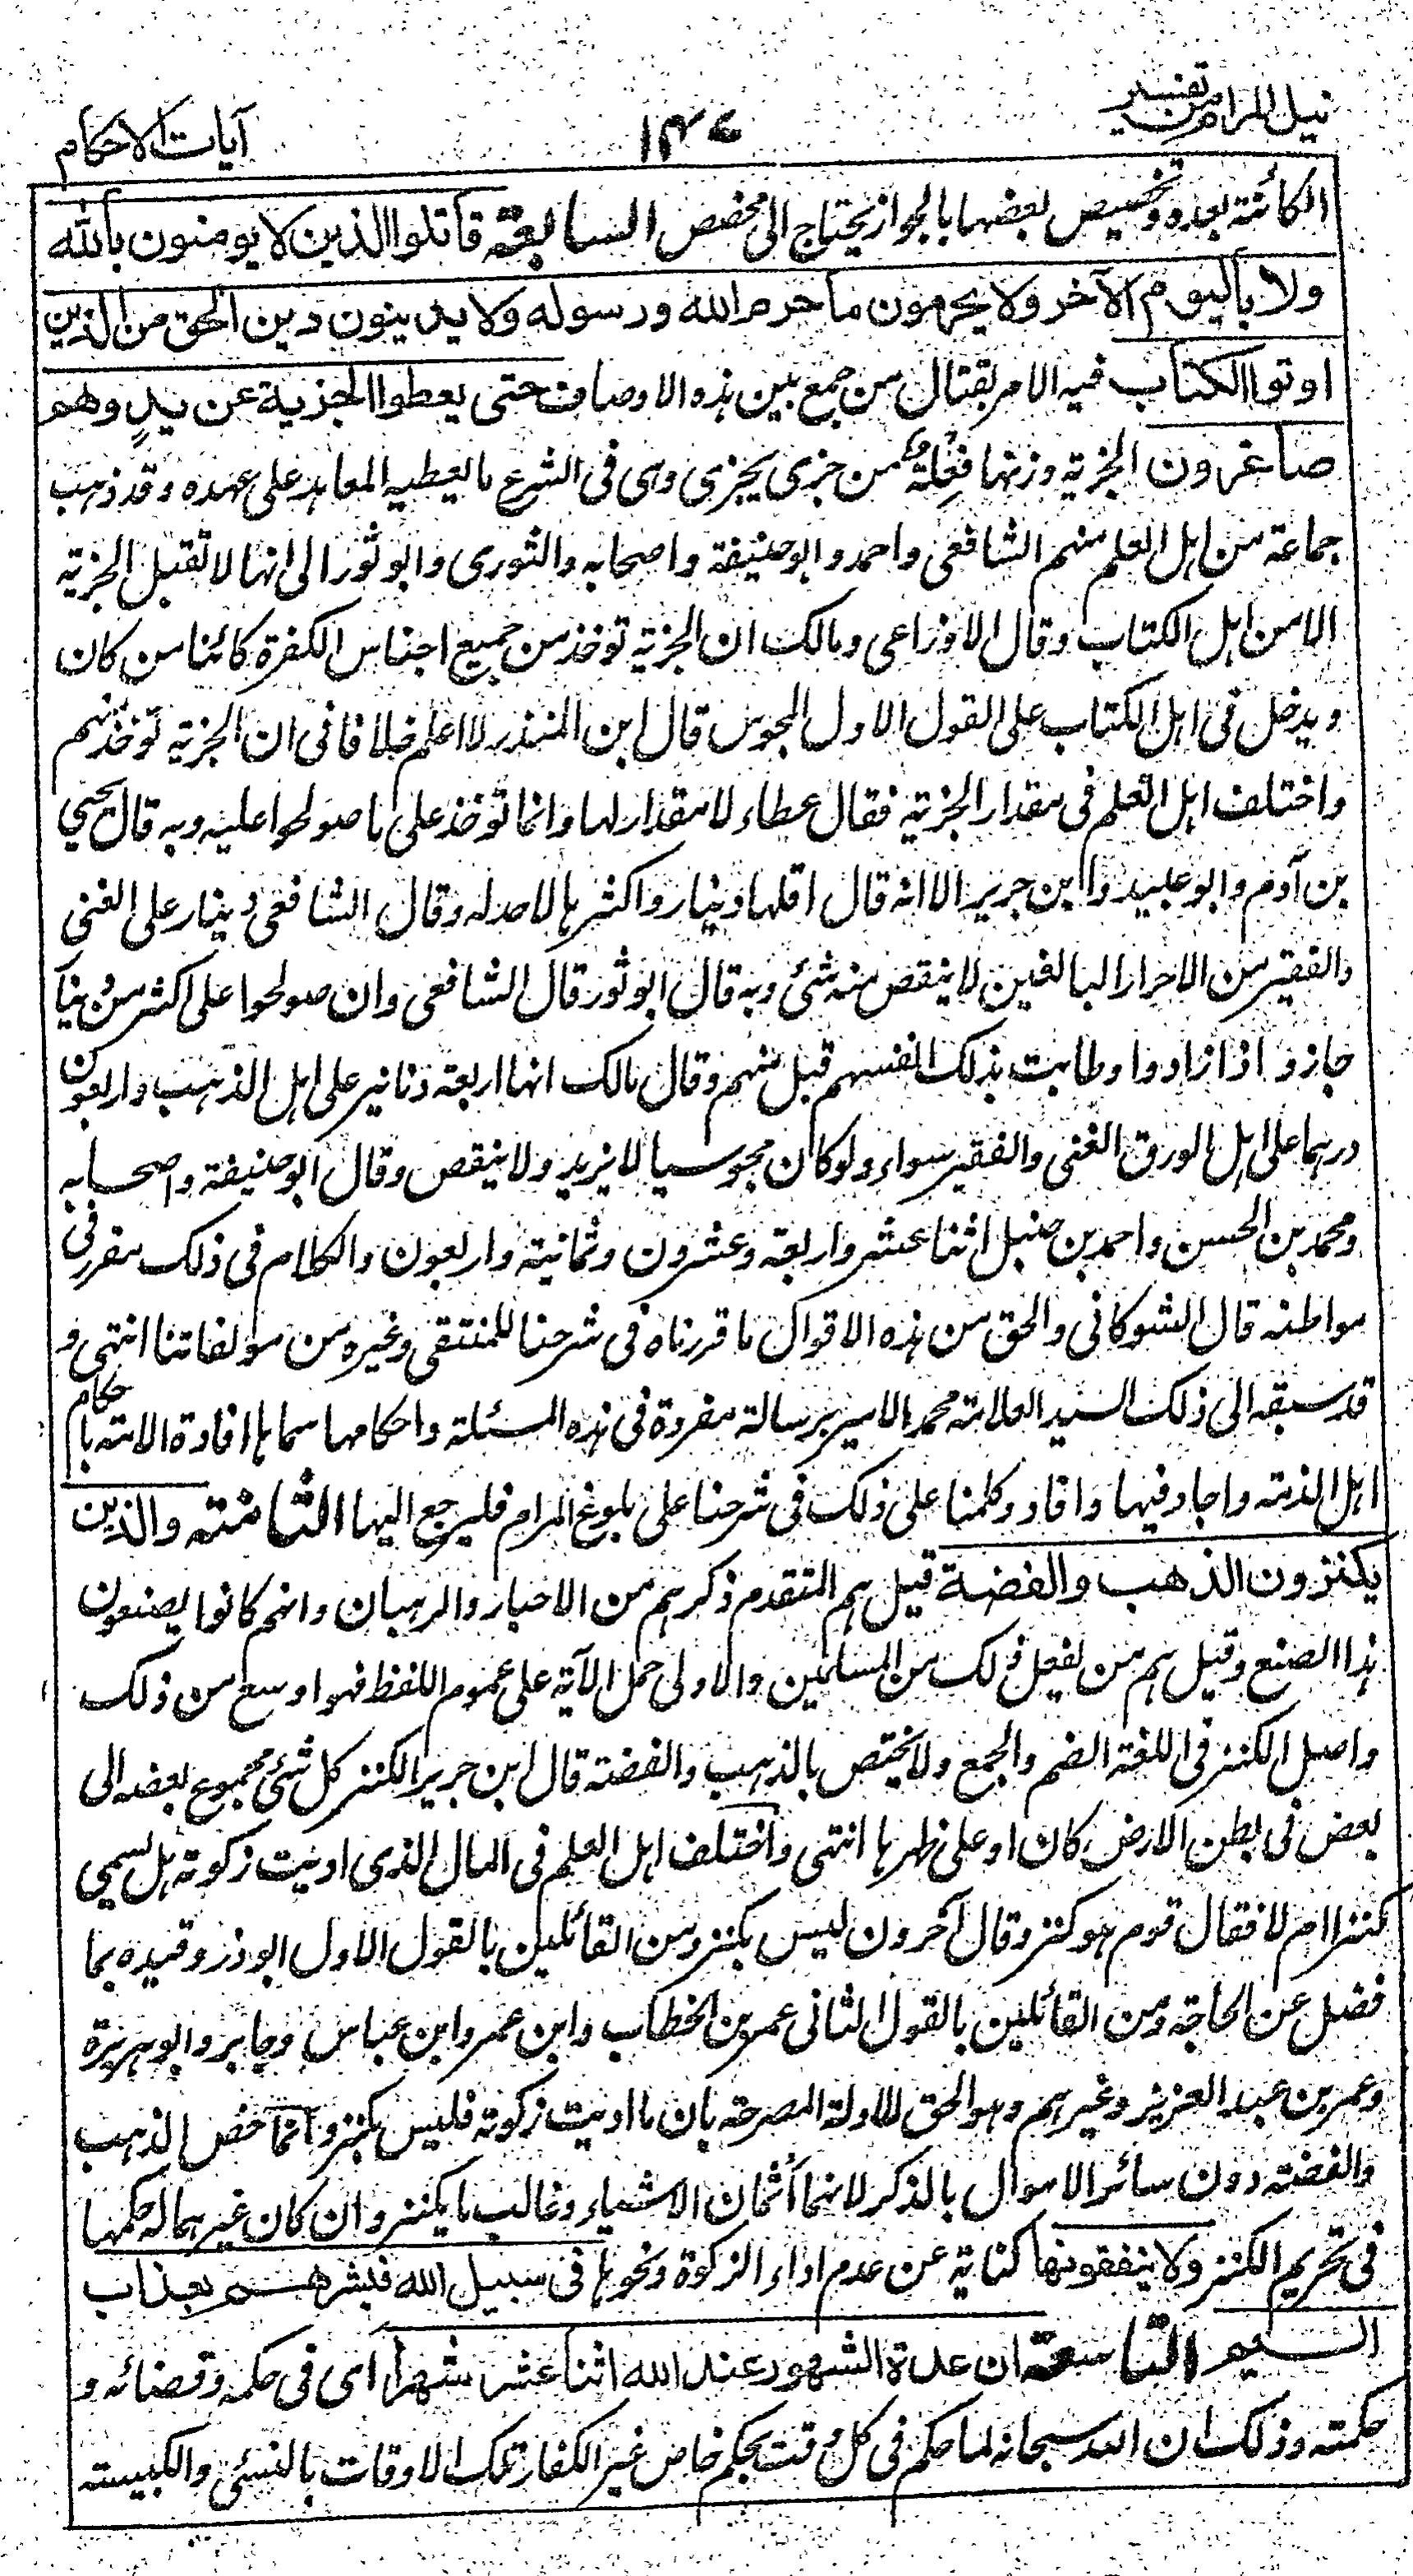 نيل المرام من تفسير
١٣٤
آيات الاحكام
الكائنة بعده وتخصيص بعضها بالجواز يحتاج الى مخصص السابعة قاتلوا الذين لا يومنون بالله
ولا باليوم الآخر ولا يحرمون ما حرم الله ورسوله ولا يدينون دين الحق من الذين
اوتوا الكتاب فيه الامر بقتال من جمع بين هذه الاوصاف حتى يعطوا الجزية عن يدٍ وهم
صاغرون الجزية وزنها فِعْلة من جزى يجزى وهى فى الشرع ما يعطيه المعاهد على عهده وقد ذهب
جماعة من اهل العلم منهم الشافعى واحمد وابو حنيفة واصحابه والثورى وابو ثور الى انها لا تقبل الجزية
الا من اهل الكتاب وقال الاوزاعى ومالك ان الجزية توخذ من جميع اجناس الكفرة كائنا من كان
ويدخل فى اهل الكتاب على القول الاول المجوس قال ابن المنذر لا اعلم خلافا فى ان الجزية توخذ منهم
واختلف اهل العلم فى مقدار الجزية فقال عطاء لا مقدار لها وانما توخذ على ما صولحوا عليه وبه قال يحيي
بن آدم وابو عبيد وابن جرير الا انه قال اقلها دينار واكثرها لا حد له وقال الشافعى دينار على الغنى
والفقير من الاحرار البالغين لا ينقص منه شئ وبه قال ابو ثور قال الشافعى وان صولحوا على اكثر من دينار
جاز واذا زادوا وطابت بذلك انفسهم قبل منهم وقال مالك انها اربعة دنانير على اهل الذهب واربعون
درهما على اهل الورق الغنى والفقير سواء ولو كان مجوسيا لا يزيد ولا ينقص وقال ابو حنيفة واصحابه
ومحمد بن الحسن واحمد بن حنبل اثنا عشر واربعة وعشرون وثمانية واربعون والكلام فى ذلك مقرر فى
مواطنه قال الشوكانى والحق من هذه الاقوال ما قررناه فى شرحنا للمنتقى وغيره من مولفاتنا انتهى و
قد سبقه الى ذلك السيد العلامة محمد الامير برسالة مفردة فى هذه المسئلة واحكامها سماها افادة الامة باحكام
اهل الذمة واجاد فيها وافاد وكلمنا على ذلك فى شرحنا على بلوغ المرام فليرجع اليها الثامنة والذين
يكنزون الذهب والفضة قيل هم المتقدم ذكرهم من الاحبار والرهبان وانهم كانوا يصنعون
هذا الصنع وقيل هم من يفعل ذلك من المسلمين والاولى حمل الآية على عموم اللفظ فهو اوسع من ذلك
واصل الكنز فى اللغة الضم والجمع ولا يختص بالذهب والفضة قال ابن جرير الكنز كل شئ مجموع بعضه الى
بعض فى بطن الارض كان او على ظهرها انتهى واختلف اهل العلم فى المال الذى اديت زكوته هل يسمى
كنزا ام لا فقال قوم هو كنز وقال آخرون ليس بكنز ومن القائلين بالقول الاول ابو ذر وقيده بما
فضل عن الحاجة ومن القائلين بالقول الثانى عمر بن الخطاب وابن عمر وابن عباس وجابر وابو هريرة
وعمر بن عبد العزيز وغيرهم وهو الحق للادلة المصرحة بان ما اديت زكوته فليس بكنز وانما خص الذهب
والفضة دون سائر الاموال بالذكر لانهما أثمان الاشياء وغالب ما يكنز وان كان غيرهما له حكمها
فى تحريم الكنز ولا ينفقونها كناية عن عدم اداء الزكوة ونحوها فى سبيل الله فبشرهم بعذاب
اليم التاسعة ان عدة الشهور عند الله اثنا عشر شهرا اى فى حكمه وقضائه و
حكمته وذلك ان الله سبحانه لما حكم فى كل وقت بحكم خاص غير الكفار تلك الاوقات بالنسئى والكبيسة